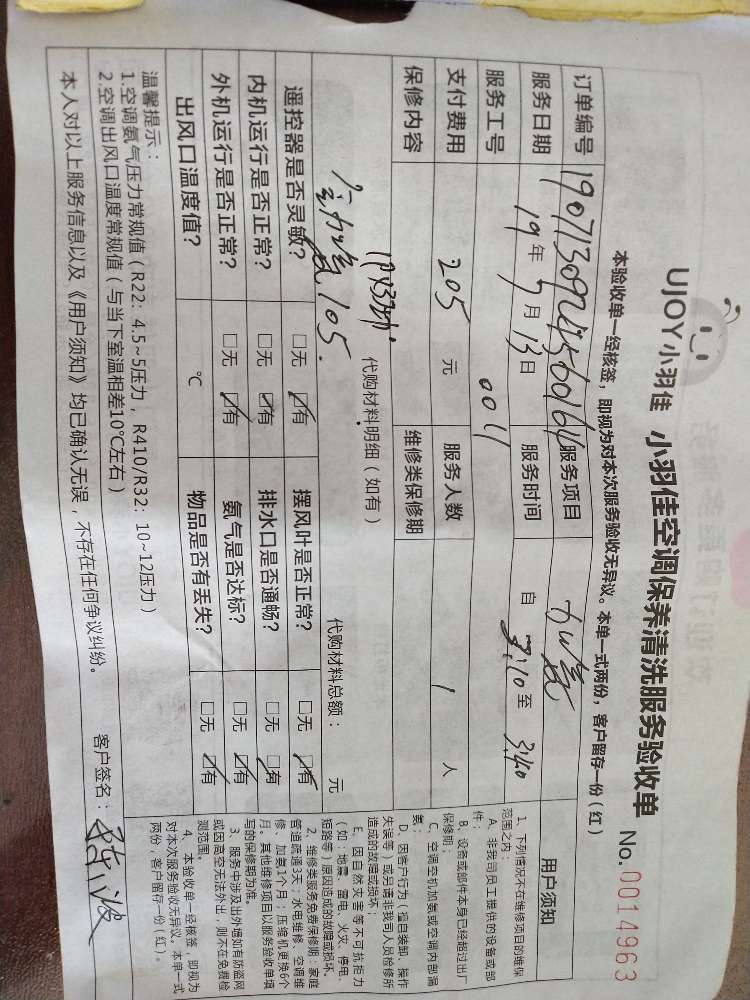 UJOY小羽佳 小羽佳空调保养清洗服务验收单 No.0014963
本验收单一经核签，即视为对本次服务验收无异议。本单一式两份，客户留存一份（红）
订单编号 服务项目 加氨
服务日期 19年7月13日 服务时间 自 3:10 至 3:40
服务工号 001
支付费用 205 元 服务人数 1 人
保修内容 维修类保修期
代购材料明细（如有） 代购材料总额： 元
105.
遥控器是否灵敏？ □无 ☑有 摆风叶是否正常？ □无 ☑有
内机运行是否正常？ □无 ☑有 排水口是否通畅？ □无 ☑有
外机运行是否正常？ □无 ☑有 氨气是否达标？ □无 ☑有
出风口温度值？ ℃ 物品是否有丢失？ □无 ☑有
温馨提示：
1.空调氨气压力常规值（R22：4.5~5压力，R410/R32：10~12压力）
2.空调出风口温度常规值（与当下室温相差10℃左右）
本人对以上服务信息以及《用户须知》均已确认无误，不存在任何争议纠纷。 客户签名：
用户须知
1、下列情况不在维修项目的维保
范围之内：
A、非我司员工提供的设备或部
件；
B、设备或部件本身已经超过出厂
保修期；
C、空调空机加氨或空调内部漏
氨；
D、因客户行为（擅自装卸、操作
失误等）或另请非我司人员检修所
造成的故障或损坏；
E、因自然灾害等不可抗拒力
（如：地震、雷电、火灾、停电、
短路等）原因造成的故障或损坏。
2、维修类服务免费保修期：家庭
管道疏通3天；水电维修、空调维
修、加氨1个月；压缩机更换6个
月。其他维修项目以服务验收单填
写的保修期为准。
3、服务中涉及出外墙如有防盗网
或因高空无法外出，则不在免费检
测范围。
4、本验收单一经核签，即视为
对本次服务验收无异议。本单一式
两份，客户留存一份（红）。